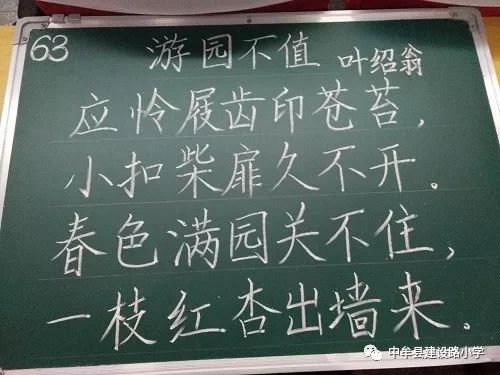 63
游园不值 叶绍翁
应怜屐齿印苍苔，
小扣柴扉久不开。
春色满园关不住，
一枝红杏出墙来。
中牟县建设路小学